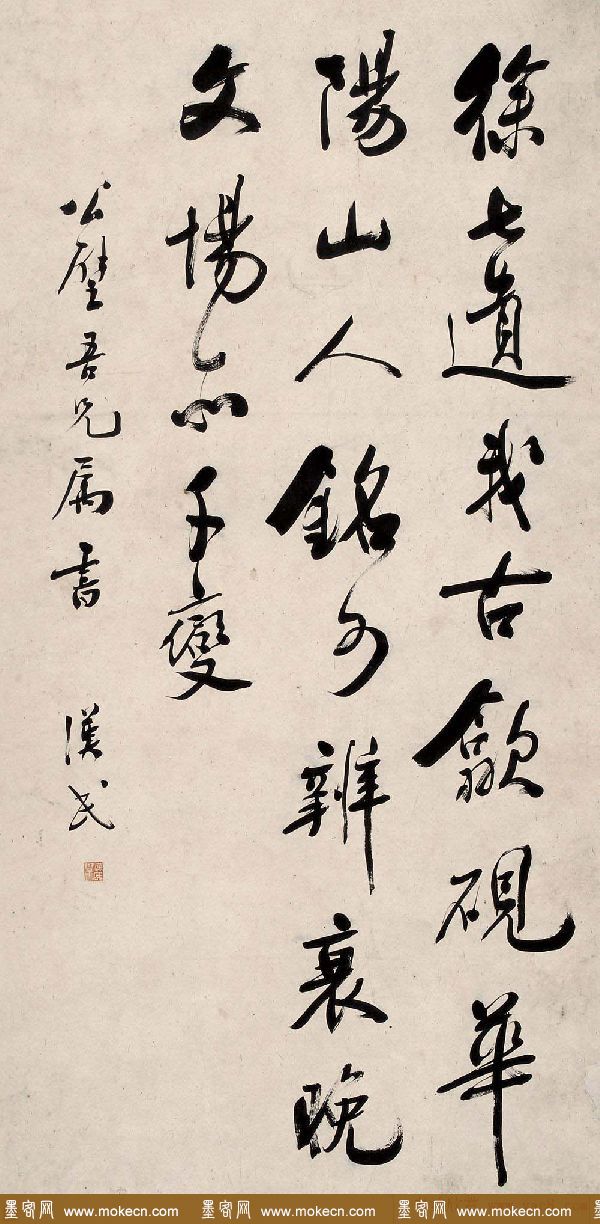 徐七遺我古歙硯華
陽山人銘可辨衰晚
文場亦千變
公璧吾兄屬書
漢民
墨客网 www.mokecn.com 墨客网 www.mokecn.com 墨客网 www.mokecn.com